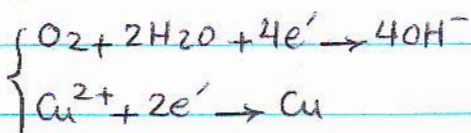 O2 + 2H2O + 4e′ → 4OH⁻
Cu²⁺ + 2e′ → Cu